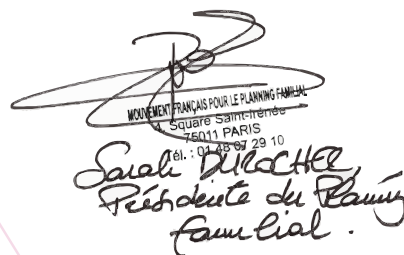 MOUVEMENT FRANÇAIS POUR LE PLANNING FAMILIAL
4, Square Saint-Irénée
75011 PARIS
Tél. : 01 48 07 29 10
Sarah DUROCHER,
Présidente du Planning
familial.